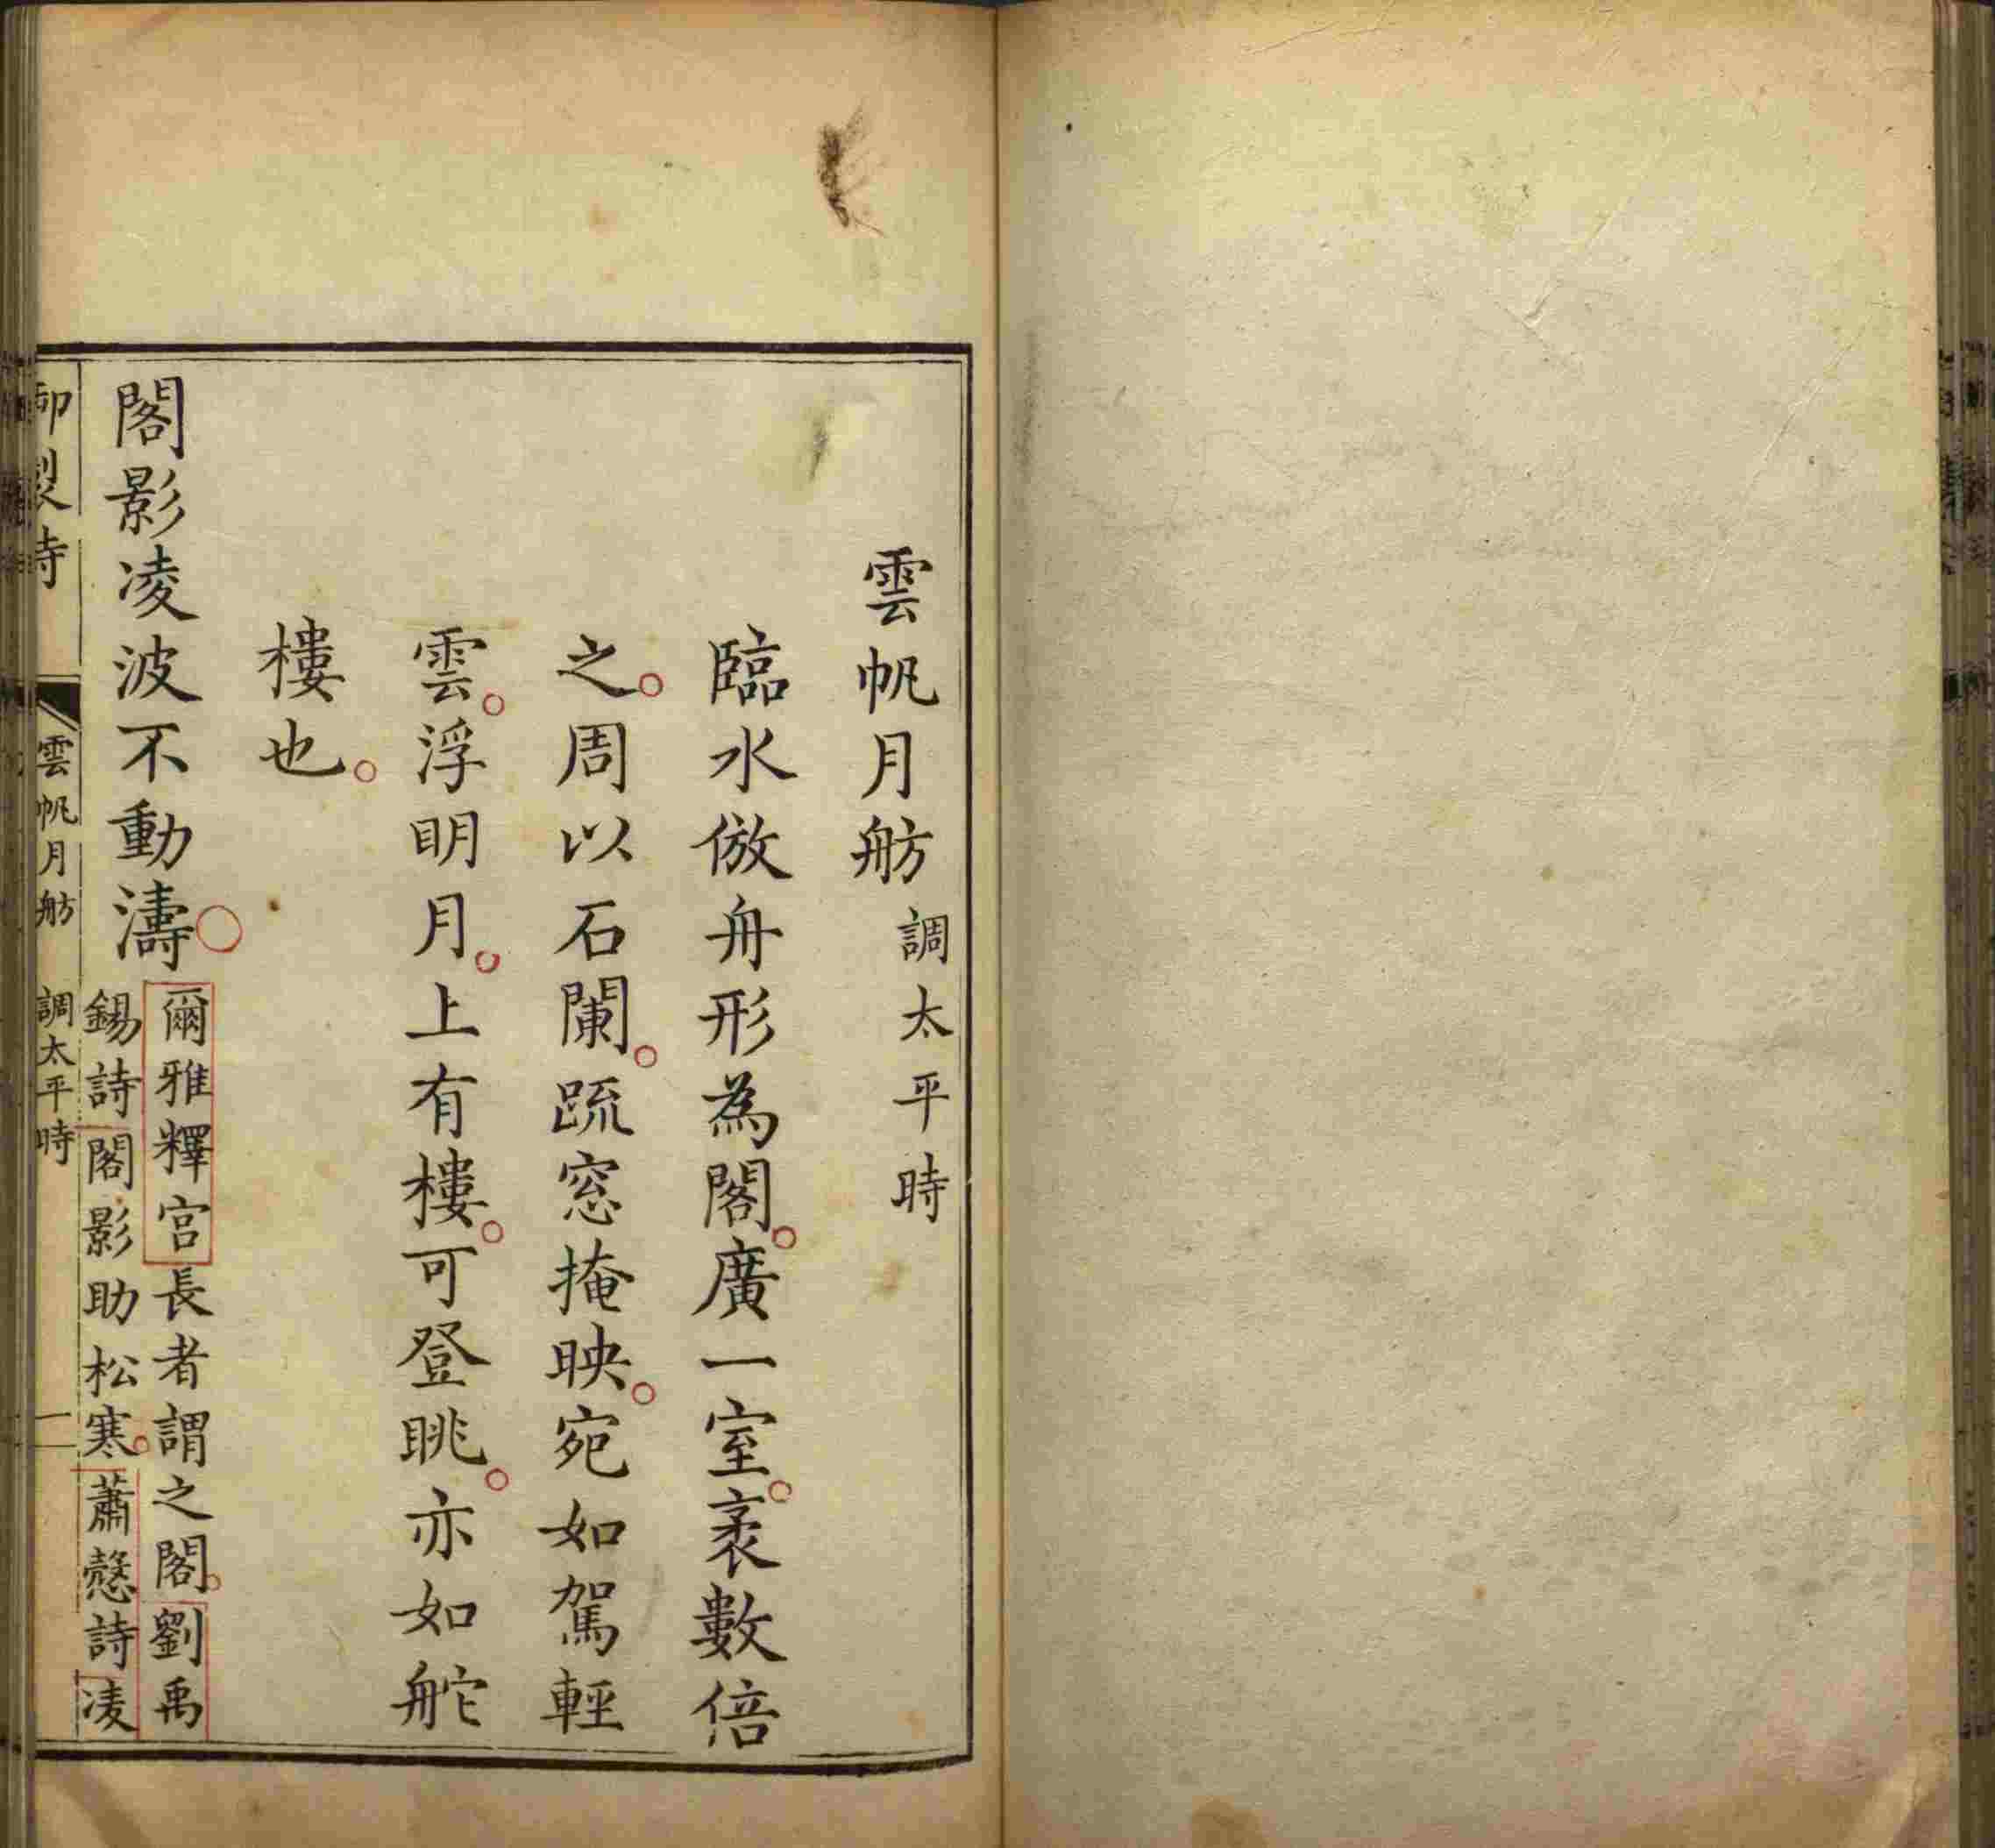 雲帆月舫 調太平時
臨水倣舟形為閣廣一室袤數倍
之周以石闌䟽窓掩映宛如駕輕
雲浮明月上有樓可登眺亦如舵
樓也
閣影凌波不動濤
爾雅釋宫長者謂之閣劉禹
錫詩閣影助松寒蕭慤詩凌
御製詩 雲帆月舫 調太平時 一